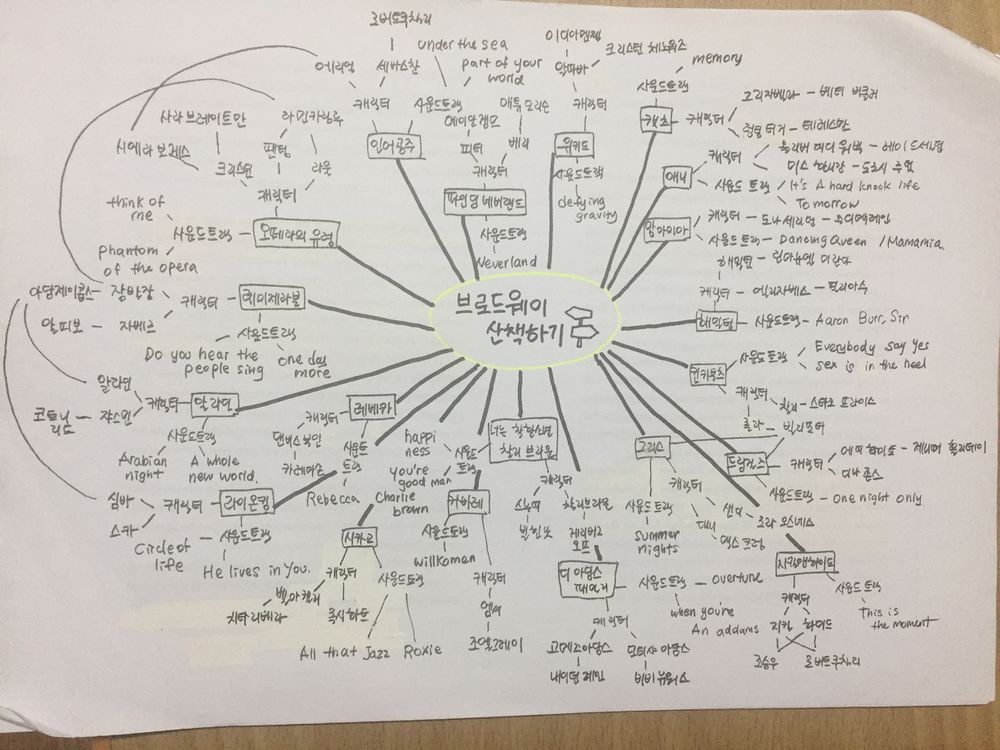 브로드웨이
산책하기
인어공주
캐릭터
에리얼
세바스찬
로버트쿠차리
사운드트랙
under the sea
part of your
world
파인딩 네버랜드
캐릭터
피터
배리
매튜 모리슨
사운드트랙
Neverland
위키드
캐릭터
알파바
이디아멘젤
크리스틴 체노웨스
사운드트랙
defying
gravity
캣츠
사운드트랙
memory
캐릭터
그리자벨라 - 베티 버클리
럼텀터거 - 테레스만
애니
캐릭터
미스 해니건 - 도로시 루돈
사운드 트랙
It's A hard knock life
Tomorrow
맘마미아
캐릭터 - 도나 세리던 - 루이따레인
사운드트랙 - Dancing Queen / Mamamia.
해밀턴
해밀턴 - 린마누엘 미란다
캐릭터 - 엘리자베스 - 필리파수
사운드트랙 - Aaron Burr, Sir
킨키부츠
사운드트랙
Everybody say yes
sex is in the heel
캐릭터
찰리 - 스타크 프라이스
롤라 - 빌리포터
드림걸즈
캐릭터
에피 화이트 - 제니퍼 홀리데이
디나 존스
사운드트랙 - One night only
그리스
사운드트랙
summer
nights
캐릭터
대니
맥스 크럼
샌디
로라 오스네스
지킬앤하이드
캐릭터
지킬 하이드
조승우 로버트쿠차리
사운드
트랙
This is
the moment
너는 착한사람
찰리 브라운
사운드
트랙
happi
ness
you're
good man
Charlie
brown
캐릭터
스누피
찰리브라운
더 아담스
패밀리
사운드트랙 - overture
when you're
An addams
캐릭터
고메즈아담스
네이던 레인
모티시아 아담스
비비 뉴워스
카바레
사운드트랙
willkomen
캐릭터
엠씨
조엘그레이
시카고
캐릭터
벨마켈리
치타리베라
록시하트
사운드트랙
All that Jazz Roxie
레베카
캐릭터
댄버스 부인
사운드
트랙
Rebecca
라이온킹
캐릭터
심바
스카
사운드트랙
Circle of
life
He lives in you.
알라딘
캐릭터
알라딘
쟈스민
코트니
리드
사운드트랙
Arabian
night
A whole
new world.
레미제라블
캐릭터
장발장
아담제이콥스
자베르
알피보
사운드트랙
Do you hear the
people sing
one day
more
오페라의 유령
캐릭터
크리스틴
시에라 보게스
사라브레이트만
팬텀
라울
라민카림루
사운드트랙
think of
me
phantom
of the opera